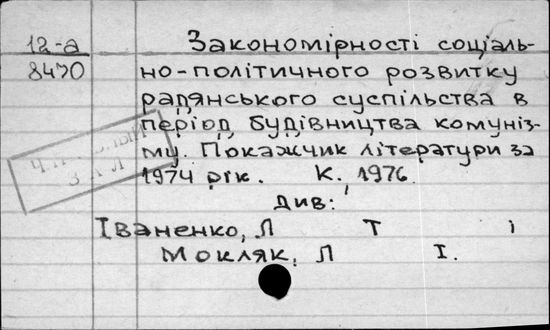 12-а
8470
Закономірності соціаль-
но-політичного розвитку
радянського суспільства в
період будівництва комуніз-
му. Покажчик літератури за
1974 рік. К., 1976
див:
Іваненко, Л Т і
Мокляк, Л І.
ЗАЛ